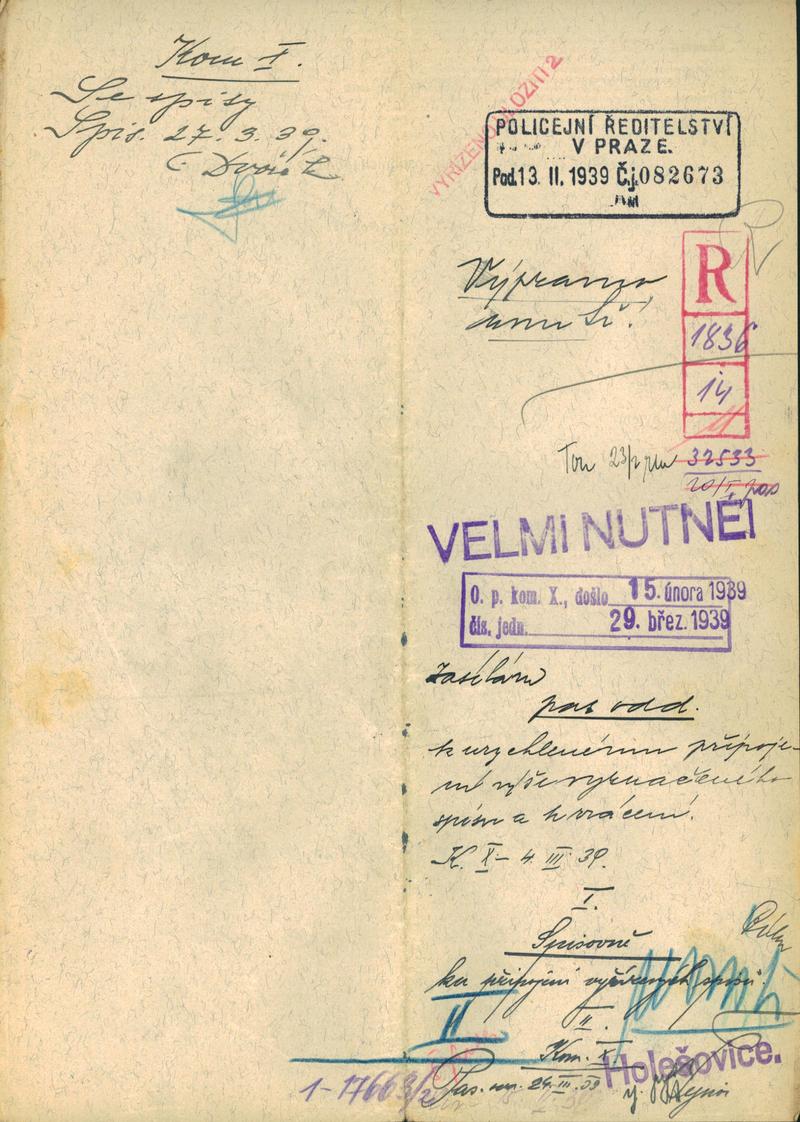 Kom X.
Se spisy
Spis. 27. 3. 39.
Dvořák
VYŘÍZENO ULOŽITI 2
POLICEJNÍ ŘEDITELSTVÍ
V PRAZE.
Pod. 13. II. 1939 Čj. 082673
R
1836
14
Výpravna
32533
20/I. pas
VELMI NUTNÉ!
O. p. kom. X., došlo 15. února 1939
čís. jedn. 29. břez. 1939
zasílám
pas odd.
k urychlenému připoje-
ní výše vyznačeného
spisu a k vrácení.
K. X - 4 III 39.
I.
Spisovně
ku připojení vyřízených spisů.
II
II.
Kom. X
Holešovice.
1-17663/2
Pas. 24. III. 39